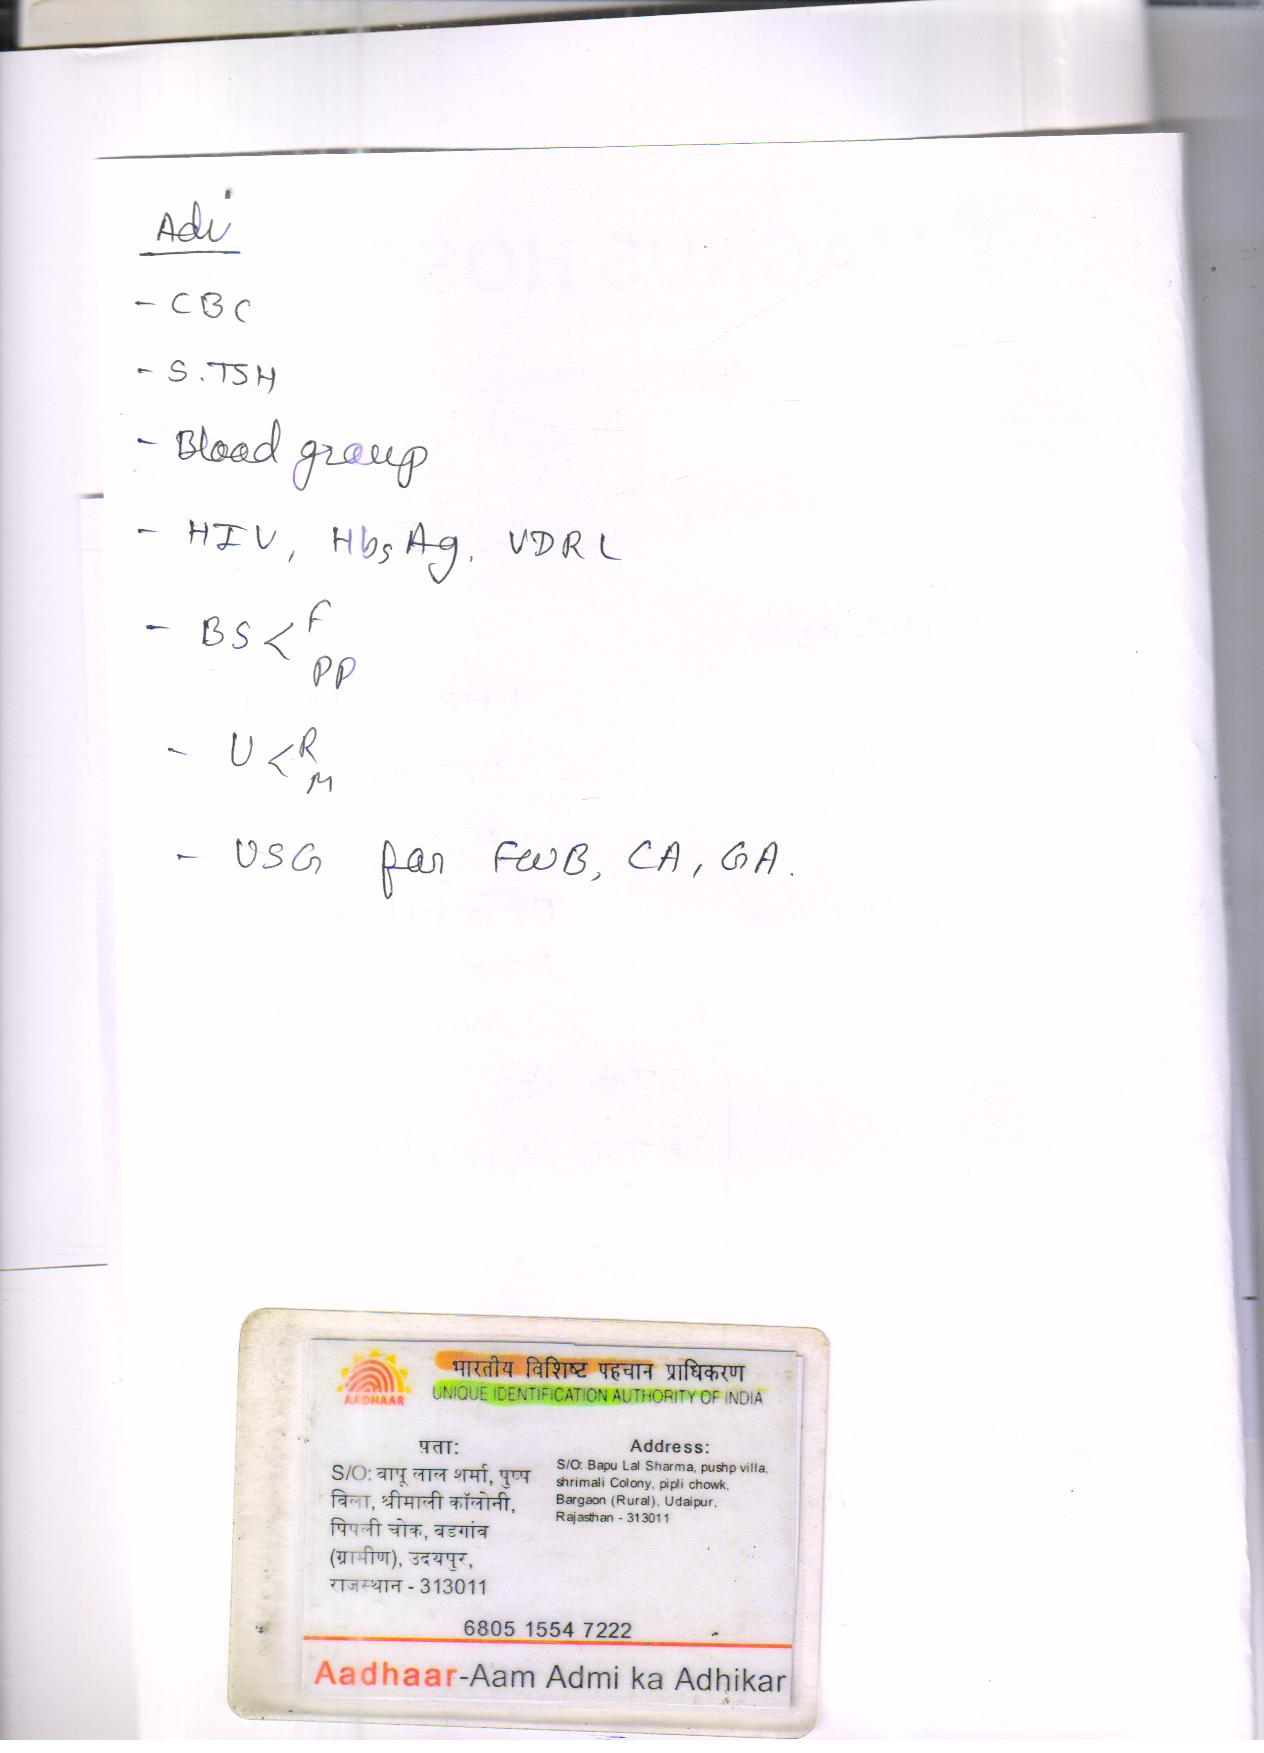 Adv
- CBC
- S.TSH
- Blood group
- HIV, HbsAg, VDRL
- BS < F
PP
- U < R
M
- USG for FWB, CA, GA.
भारतीय विशिष्ट पहचान प्राधिकरण
UNIQUE IDENTIFICATION AUTHORITY OF INDIA
AADHAAR
पता:
S/O: बापू लाल शर्मा, पुष्प
विला, श्रीमाली कॉलोनी,
पिपली चोक, बडगांव
(ग्रामीण), उदयपुर,
राजस्थान - 313011
Address:
S/O: Bapu Lal Sharma, pushp villa,
shrimali Colony, pipli chowk,
Bargaon (Rural), Udaipur,
Rajasthan - 313011
6805 1554 7222
Aadhaar-Aam Admi ka Adhikar